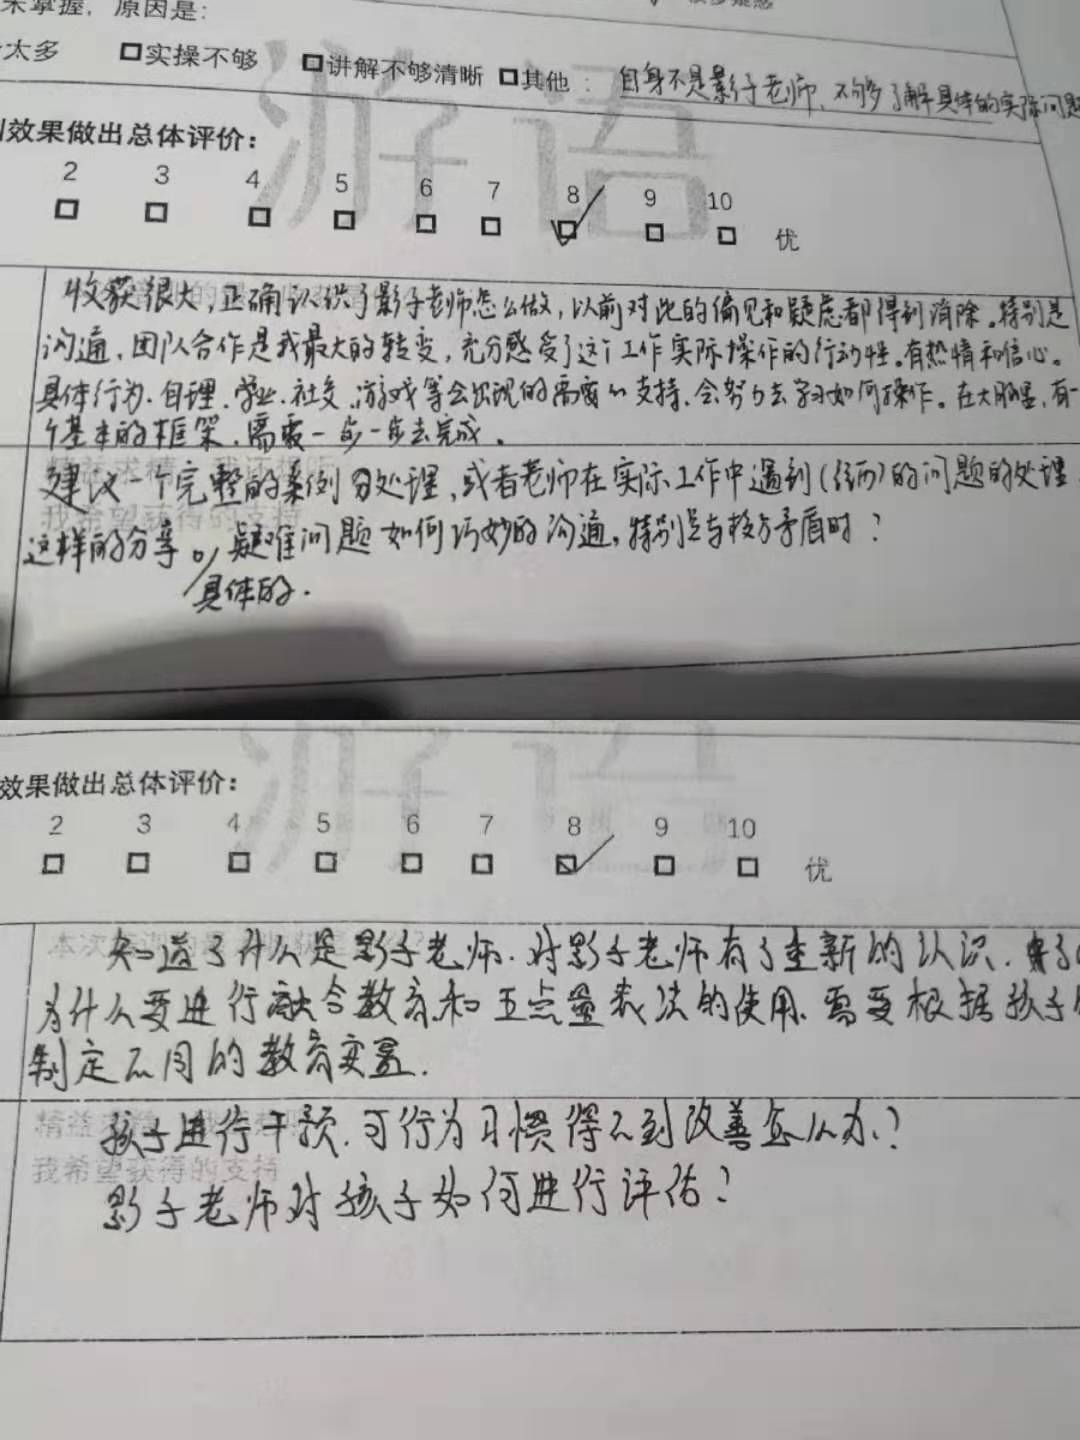 未掌握，原因是：
太多 □实操不够 □讲解不够清晰 □其他： 自身不是影子老师、不够了解具体的实际问题
效果做出总体评价：
2 3 4 5 6 7 8 9 10
优
游语
收获很大，正确认识了影子老师怎么做，以前对此的偏见和疑虑都得到消除。特别是
沟通，团队合作是我最大的转变，充分感受了这个工作实际操作的行动性。有热情和信心。
具体行为、自理、学业、社交、游戏等会出现的需要的支持、会努力去学习如何操作。在大脑里，有一
个基本的框架、需要一步一步去完成。
建议一个完整的案例分处理，或者老师在实际工作中遇到()的问题的处理
这样的分享。疑难问题如何巧妙的沟通，特别是与校方矛盾时？
具体的.
我希望获得的支持
效果做出总体评价：
2 3 4 5 6 7 8 9 10
优
游语
知道了什么是影子老师.对影子老师有了重新的认识.
为什么要进行融合教育和五点量表法的使用、需要根据孩子
制定不同的教育
孩子进行干预.可行为习惯得不到改善怎么办?
我希望获得的支持
影子老师对孩子如何进行评估?